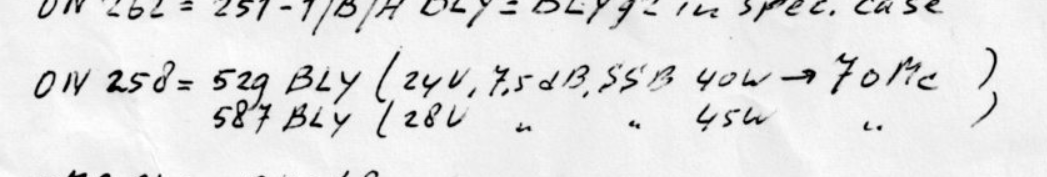 ON 262 = 251-1/B/A BLY = BLY92 in spec. case
ON 258 = 529 BLY (24V, 7.5dB, SSB 40W → 70Mc )
587 BLY (28V " " 45W " )